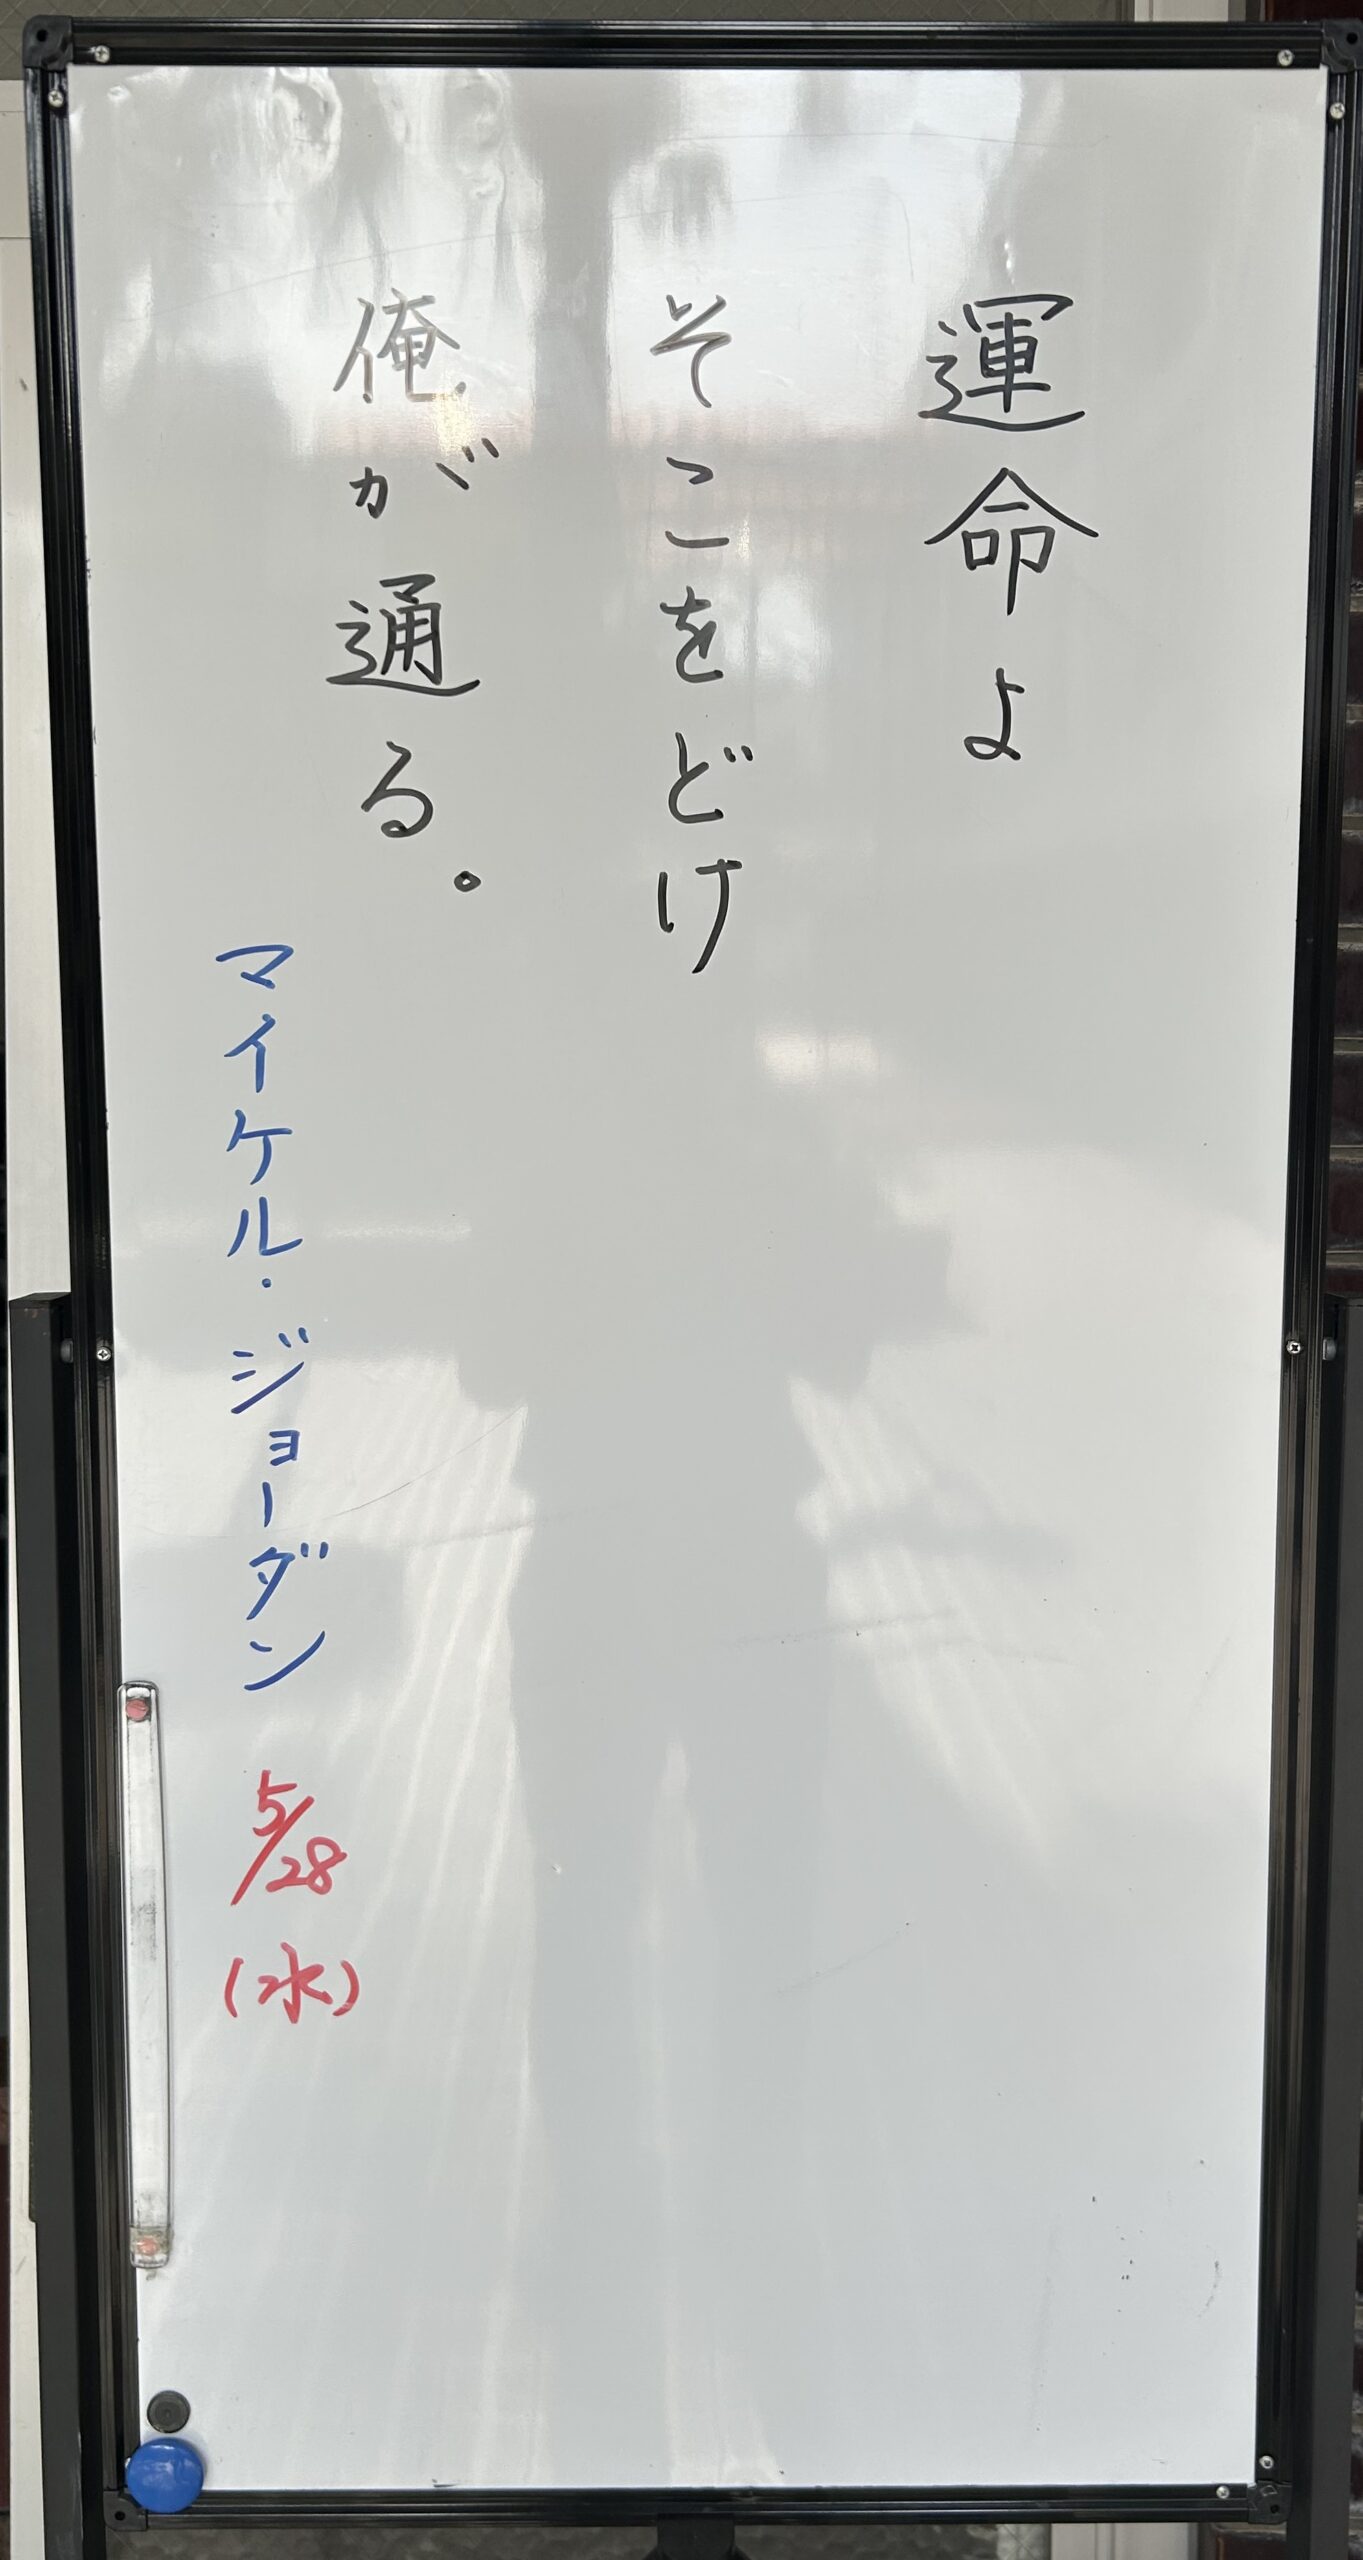 運命よ
そこをどけ
俺が通る。
マイケル・ジョーダン
5/28
(水)